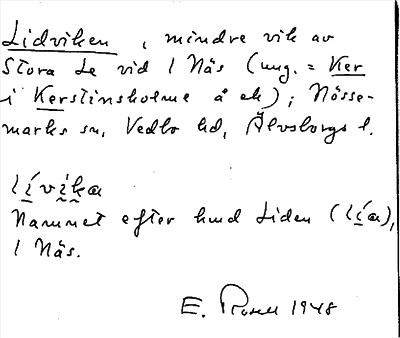 Lidviken, mindre vik av
Stora Le vid 1 Näs (ung. = Ker
i Kerstinsholme å ek); Nösse-
marks sn, Vedbo hd, Älvsborgs l.
lívíka
Namnet efter hmd Liden (lía),
1 Näs.
E. Rosell 1948